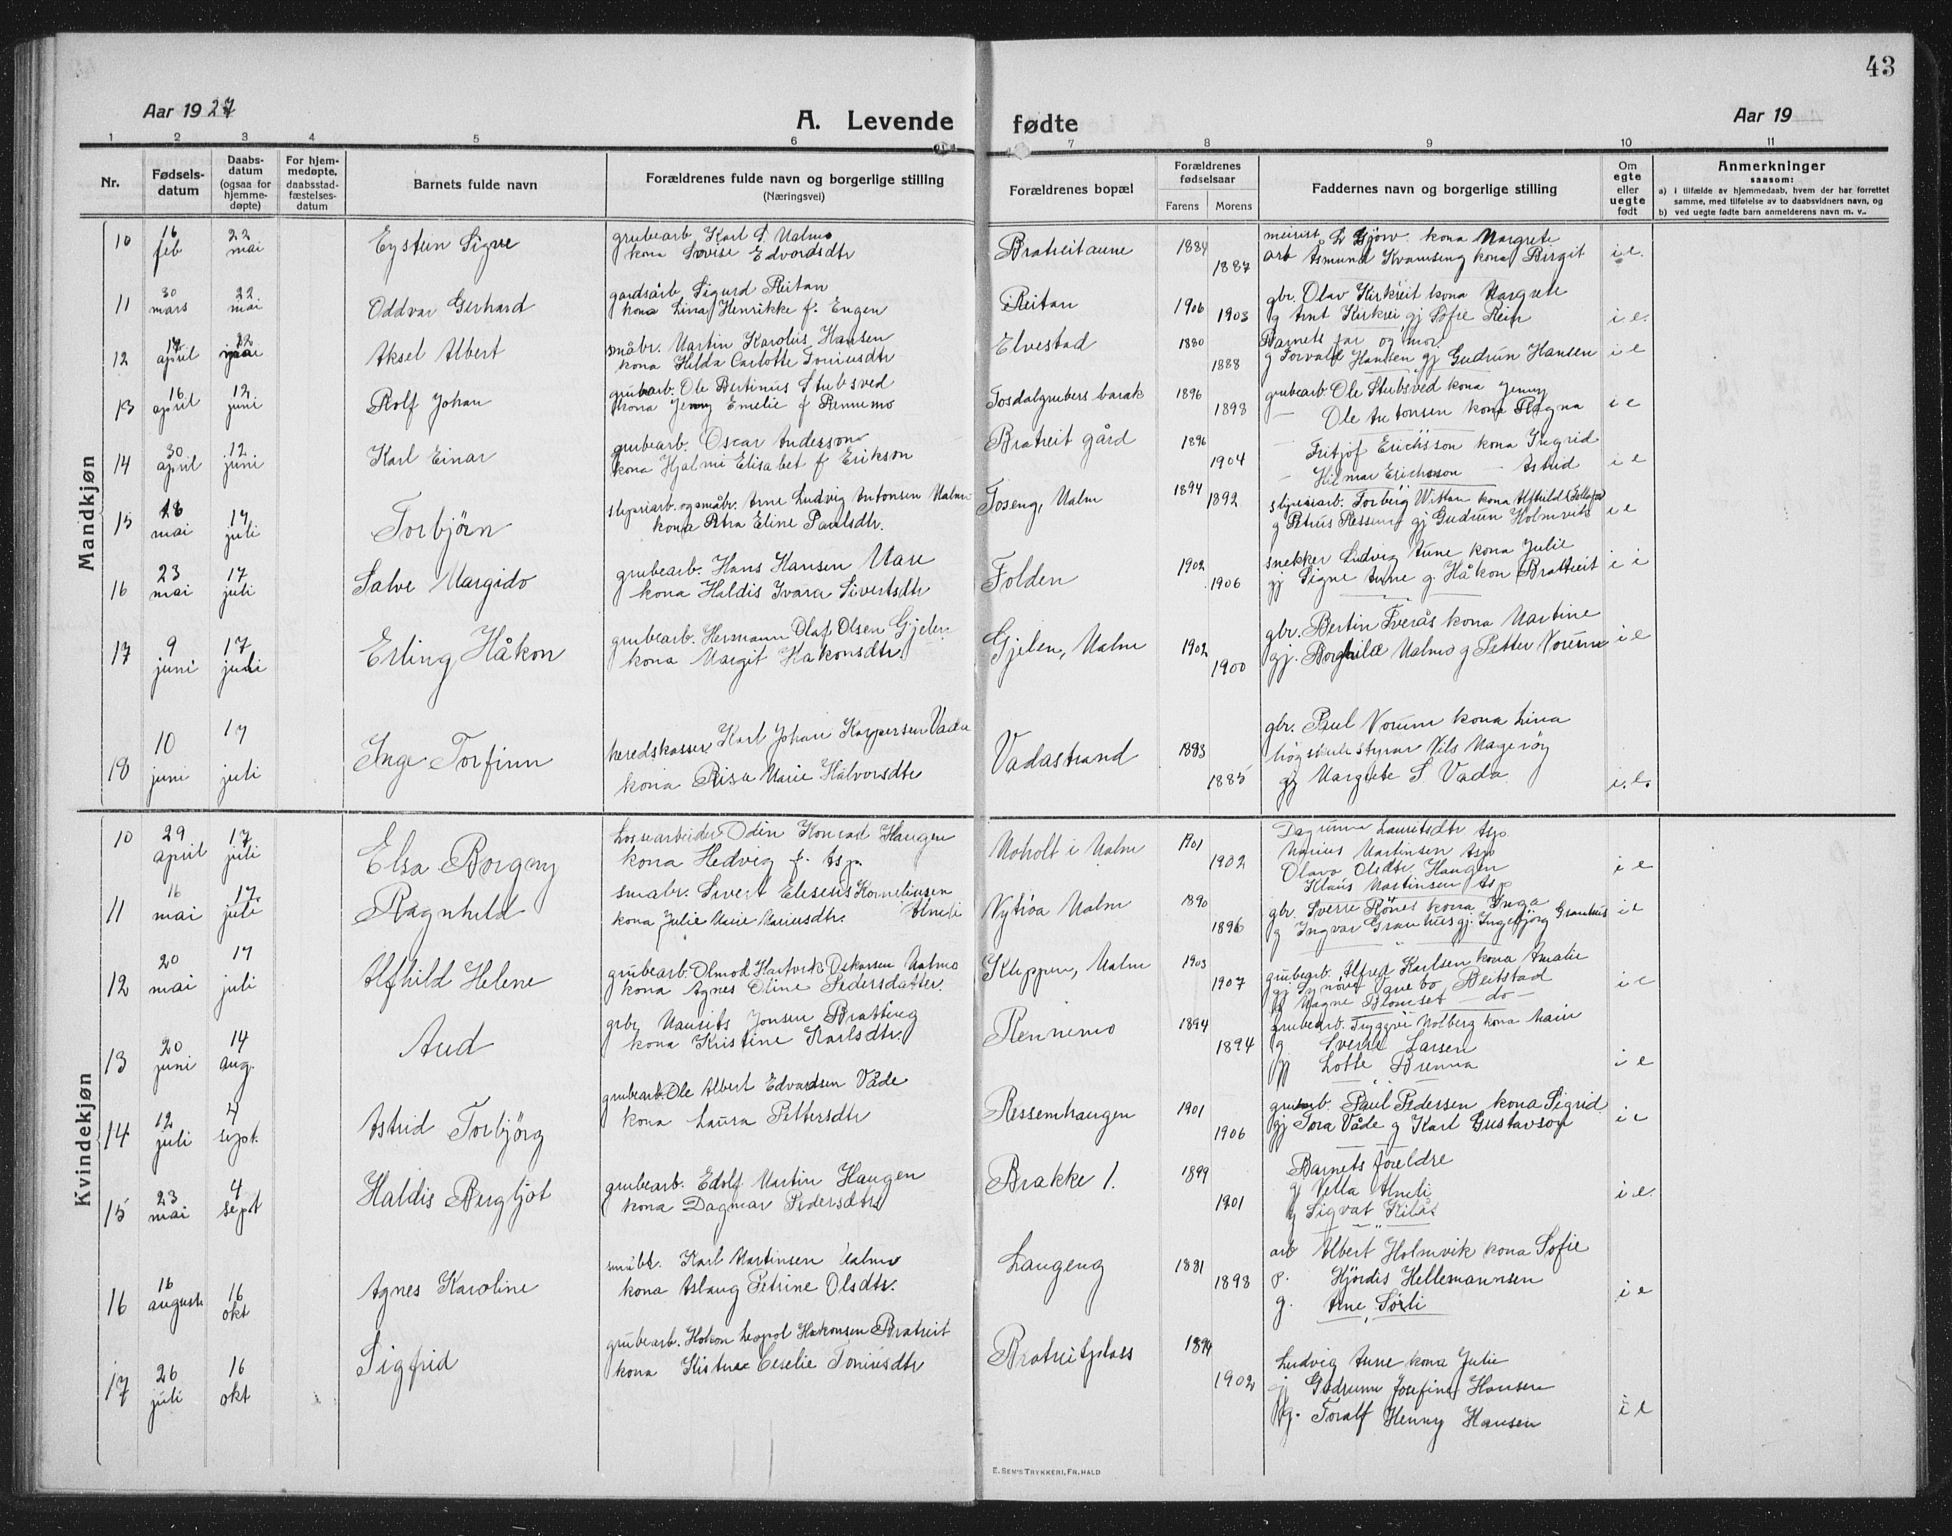 43
Aar 1927
A. Levende fødte
Aar 19
1 2 3 4 5 6 7 8 9 10 11
Nr.
Fødsels-
datum
Daabs-
datum
(ogsaa for
hjemme-
døpte)
For hjem-
medøpte,
daabsstad-
fæstelses-
datum
Barnets fulde navn
Forældrenes fulde navn og borgerlige stilling
(Næringsvei)
Forældrenes bopæl
Forældrenes
fødselsaar
Farens Morens
Faddernes navn og borgerlige stilling
Om
egte
eller
uegte
født
Anmerkninger
saasom:
a) i tilfælde av hjemmedaab, hvem der har forrettet
samme, med tilføielse av to daabsvidners navn, og
b) ved uegte fødte barn anmelderens navn m. v..
Mandkjøn
10 16 feb 22 mai Eystein Signe
grubearb. Karl S. Malmo
kona Lovise Edvardsdtr
Bratreitaune 1884 1887
meierist L Gjörv kona Margrete
arb Asmund Kvamseng kona Birgit i.e.
11 30 mars 22 mai Oddvar Gerhard
gardsarb Sigurd Reitan
kona Lina Henrikke f. Engen
Reitan 1906 1903
gbr. Olav Kirkreit kona Margrete
g Arnt Kirkrei gj Sofie Rein i e.
12 17 april 22 mai Aksel Albert
småbr. Martin Karolius Hansen
kona Hilda Carlotte Toniusdtr
Elvestad 1880 1888
Barnets far og mor.
g Torvald Hansen gj Gudrun Hansen i e
13 16 april 12 juni Rolf Johan
grubearb. Ole Bertinus Stubsved
kona Jenny Emelie f Rennemo
Fosdalgrubers barak 1896 1898
grubearb. Ole Stubsved kona Jenny
— Ole Antonsen kona Ragna i e
14 30 april 12 juni Karl Einar
grubearb. Oscar Anderson
kona Hjalmi Elisabet f Erikson
Bratreit gård 1896 1904
— Fritjof Erichsson kona Ingrid
— Hilmar Erichsson — Astrid i e
15 18 mai 17 juli Torbjörn
sliperiarb. og småbr. Arne Ludvig Antonsen Malm
kona Petra Eline Paulsdtr.
Toseng, Malm 1894 1892
sliperiarb. Torberg Wistan kona Alfhild (Follafos)
g Petrus Ressem gj Gudrun Holmvik i e
16 23 mai 17 juli Salve Margido
grubearb. Hans Hansen Mare
kona Haldis Ivara Sivertsdtr
Folden 1902 1906
snekker Ludvig Aune kona Julie
gj Signe Aune g. Håkon Bratreit i i
17 9 juni 17 juli Erling Håkon
grubearb. Hermann Olaf Olsen Gjelen
kona Margit Hakonsdtr.
Gjelen, Malm 1902 1900
gbr. Bertin Tverås kona Martine
gj. Borghild Malmo g Petter Vorum i e
18 10 juni 17 juli Inge Torfinn
heredskasser Karl Johan Kaspersen Vada
kona Risa Marie Halvorsdtr
Vadastrand 1883 1885
gbr. Paul Vorum kona Lina
högskulestyrar Nils Mageröy
gj Margrete S. Vada i.e.
Kvindekjøn
10 29 april 17 juli Elsa Borgny
Lossearbeider Odin Konrad Haugen
kona Hedvig f. Asp.
Moholt i Malm 1901 1902
Dagunna Lauritsdtr Asp
Marius Martinsen Asp
Olava Olsdtr Haugen
Klaus Martinsen Asp i e
11 16 mai 17 juli Ragnhild
småbr. Sivert Eliseus Korneliussen Almli
kona Julie Marie Mariusdtr.
Nytrøa Malm 1890 1896
gbr. Sverre Rönes kona Inga
g Ingvar Granhus gj. Ingebjörg Granhus i e
12 20 mai 17 juli Alfhild Helene
grubearb. Olmod Hartvik Oskarsen Malmo
kona Agnes Oline Pedersdatter.
Klippen, Malm 1903 1907
grubearb. Alfred Karlsen kona Amalie
gj Synöve Quebo Beitstad
g Magne Blomset — do — i e
13 20 juni 14 aug. Aud
grbr Mausits Jonsen Bratberg
kona Kristine Karlsdtr.
Rennemo 1894 1894
grubearb. Tryggve Molberg kona Maie
g Sverre Larsen
gj Lotte Brenna i e
14 12 juli 4 sept. Astrid Torbjörg
grubearb. Ole Albert Edvardsen Våde
kona Laura Pettersdtr
Ressemhaugen 1901 1906
grubearb. Paul Pedersen kona Sigrid
gj Tora Våde g Karl Gustavson i e
15 23 mai 4 sept Haldis Bergljot
grubearb. Edolf Martin Haugen
kona Dagmar Pedersdtr
Brakke 1. 1899 1901
Barnets foreldre
gj Vella Almli
g Sigvat Kilås i e.
16 16 august 16 okt Agnes Karoline
småbr. Karl Martinsen Malmo
kona Aslaug Petrine Olsdtr.
Langeng 1881 1898
arb Albert Holmvik kona Sofie
p. Hjördis Hellemannsen
g. Arne Sörli i e
17 26 juli 16 okt Sigfrid
grubearb. Hakon Leopol Hakonsen Bratreit
kona Kistna Ceselie Toniusdtr
Bratreitplass 1894 1902
Ludvig Aune kona Julie
gj Gudrunn Josefine Hansen
g. Toralf Henny Hansen i e
E. Sem's Trykkeri, Fr. Hald